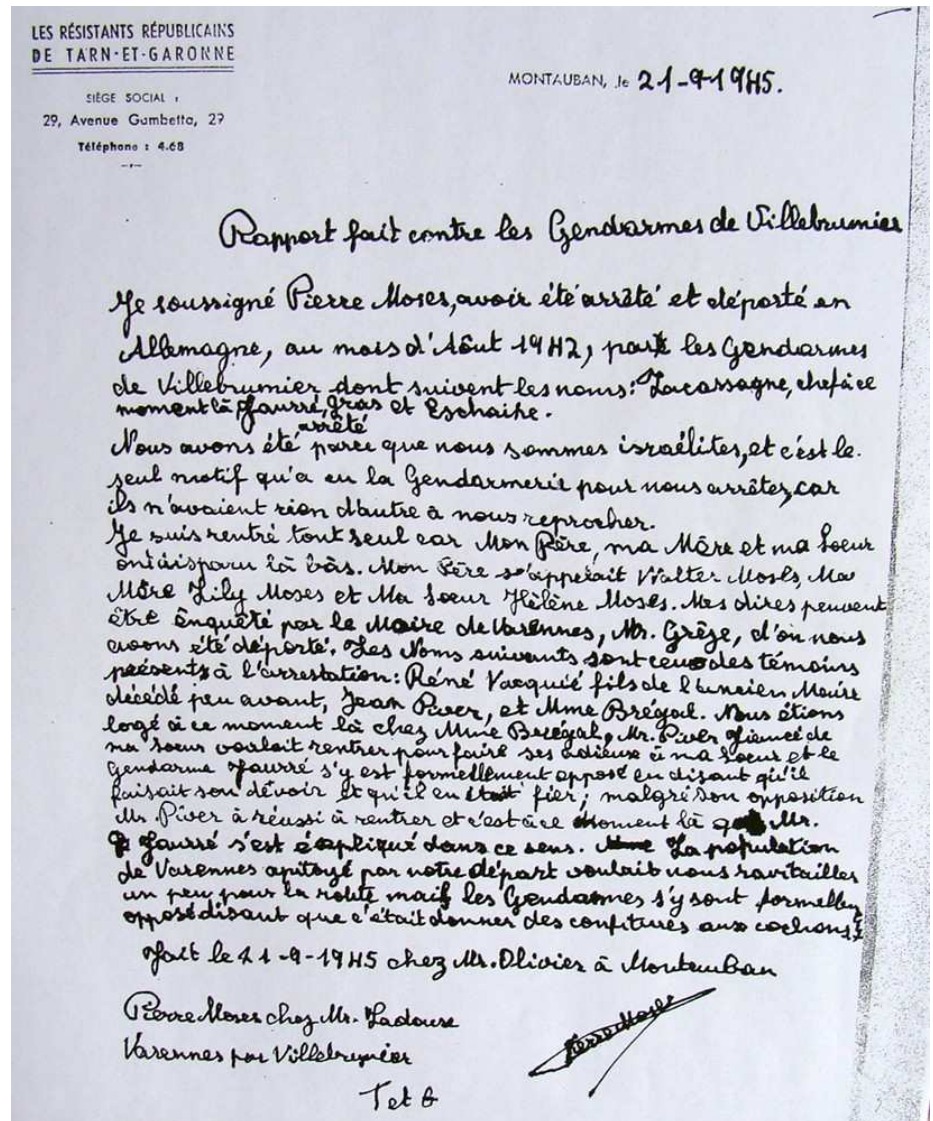 LES RÉSISTANTS RÉPUBLICAINS
DE TARN-ET-GARONNE
SIÈGE SOCIAL :
29, Avenue Gambetta, 29
Téléphone : 4.68
MONTAUBAN, le 21-9-1945.
Rapport fait contre les Gendarmes de Villebrumier
Je soussigné Pierre Moses, avoir été arrêté et déporté en
Allemagne, au mois d'Aôut 1942, par les Gendarmes
de Villebrumier dont suivent les noms: Lacassagne, chef à ce
moment là Jaurré, Gras et Eschaihe.
arrêté
Nous avons été parce que nous sommes israélites, et c'est le
seul motif qu'a eu la Gendarmerie pour nous arrêter, car
ils n'avaient rien d'autre à nous reprocher.
Je suis rentré tout seul car Mon Père, ma Mère et ma Soeur
ont disparu là bàs. Mon Père s'appelait Walter Moses, Ma
Mère Lily Moses et Ma soeur Hélène Moses. Mes dires peuvent
être enquêté par le Maire de Varennes, Mr. Grèze, d'où nous
avons été déporté. Les Noms suivants sont ceux des témoins
présents à l'arrestation: Réné Vacquié fils de l'ancien Maire
décédé peu avant, Jean Piver, et Mme Brégal. Nous étions
logé à ce moment là chez Mme Brégal, Mr. Piver fiancé de
ma soeur voulait rentrer pour faire ses adieux à ma soeur et le
Gendarme Jaurré s'y est formellement opposé en disant qu'il
faisait son dévoir et qu'il en était fier; malgré son opposition
Mr. Piver à réussi à rentrer et c'est à ce moment là Mr.
Jaurré s'est éxpliqué dans ce sens. La population
de Varennes apitoyé par notre départ voulait nous ravitailler
un peu pour la route mais les Gendarmes s'y sont
opposé disant que c'était donner des confitures aux cochons.
Fait le 21-9-1945 chez Mr. Olivier à Montauban
Pierre Moses chez Mr. Ladouse
Varennes par Villebrumier
T et G
Pierre Moses